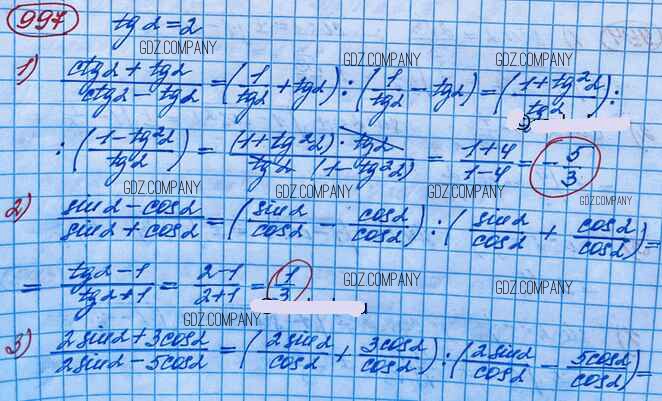 997 tg α = 2
GDZ.COMPANY
1) (ctg α + tg α)/(ctg α - tg α) = (1/tg α + tg α) : (1/tg α - tg α) = ((1 + tg²α)/tg α) :
GDZ.COMPANY GDZ.COMPANY
: ((1 - tg²α)/tg α) = ((1 + tg²α) · tg α)/(tg α (1 - tg²α)) = (1 + 4)/(1 - 4) = - 5/3
GDZ.COMPANY GDZ.COMPANY GDZ.COMPANY GDZ.COMPANY
2) (sin α - cos α)/(sin α + cos α) = (sin α/cos α - cos α/cos α) : (sin α/cos α + cos α/cos α) =
= (tg α - 1)/(tg α + 1) = (2 - 1)/(2 + 1) = 1/3
GDZ.COMPANY GDZ.COMPANY
GDZ.COMPANY
3) (2 sin α + 3 cos α)/(2 sin α - 5 cos α) = (2 sin α/cos α + 3 cos α/cos α) : (2 sin α/cos α - 5 cos α/cos α) =